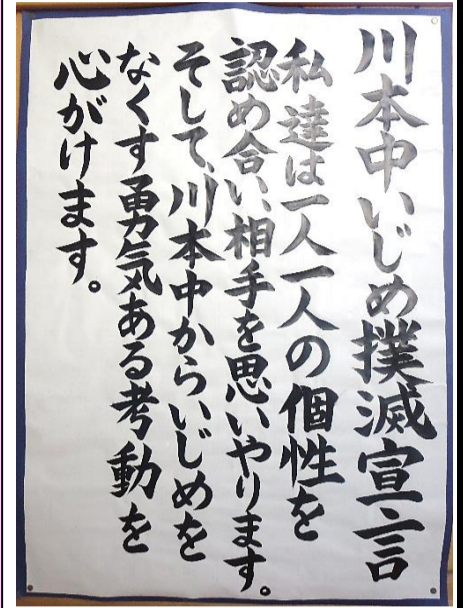 川本中いじめ撲滅宣言
私達は一人一人の個性を
認め合い、相手を思いやります。
そして、川本中からいじめを
なくす勇気ある考動を
心がけます。